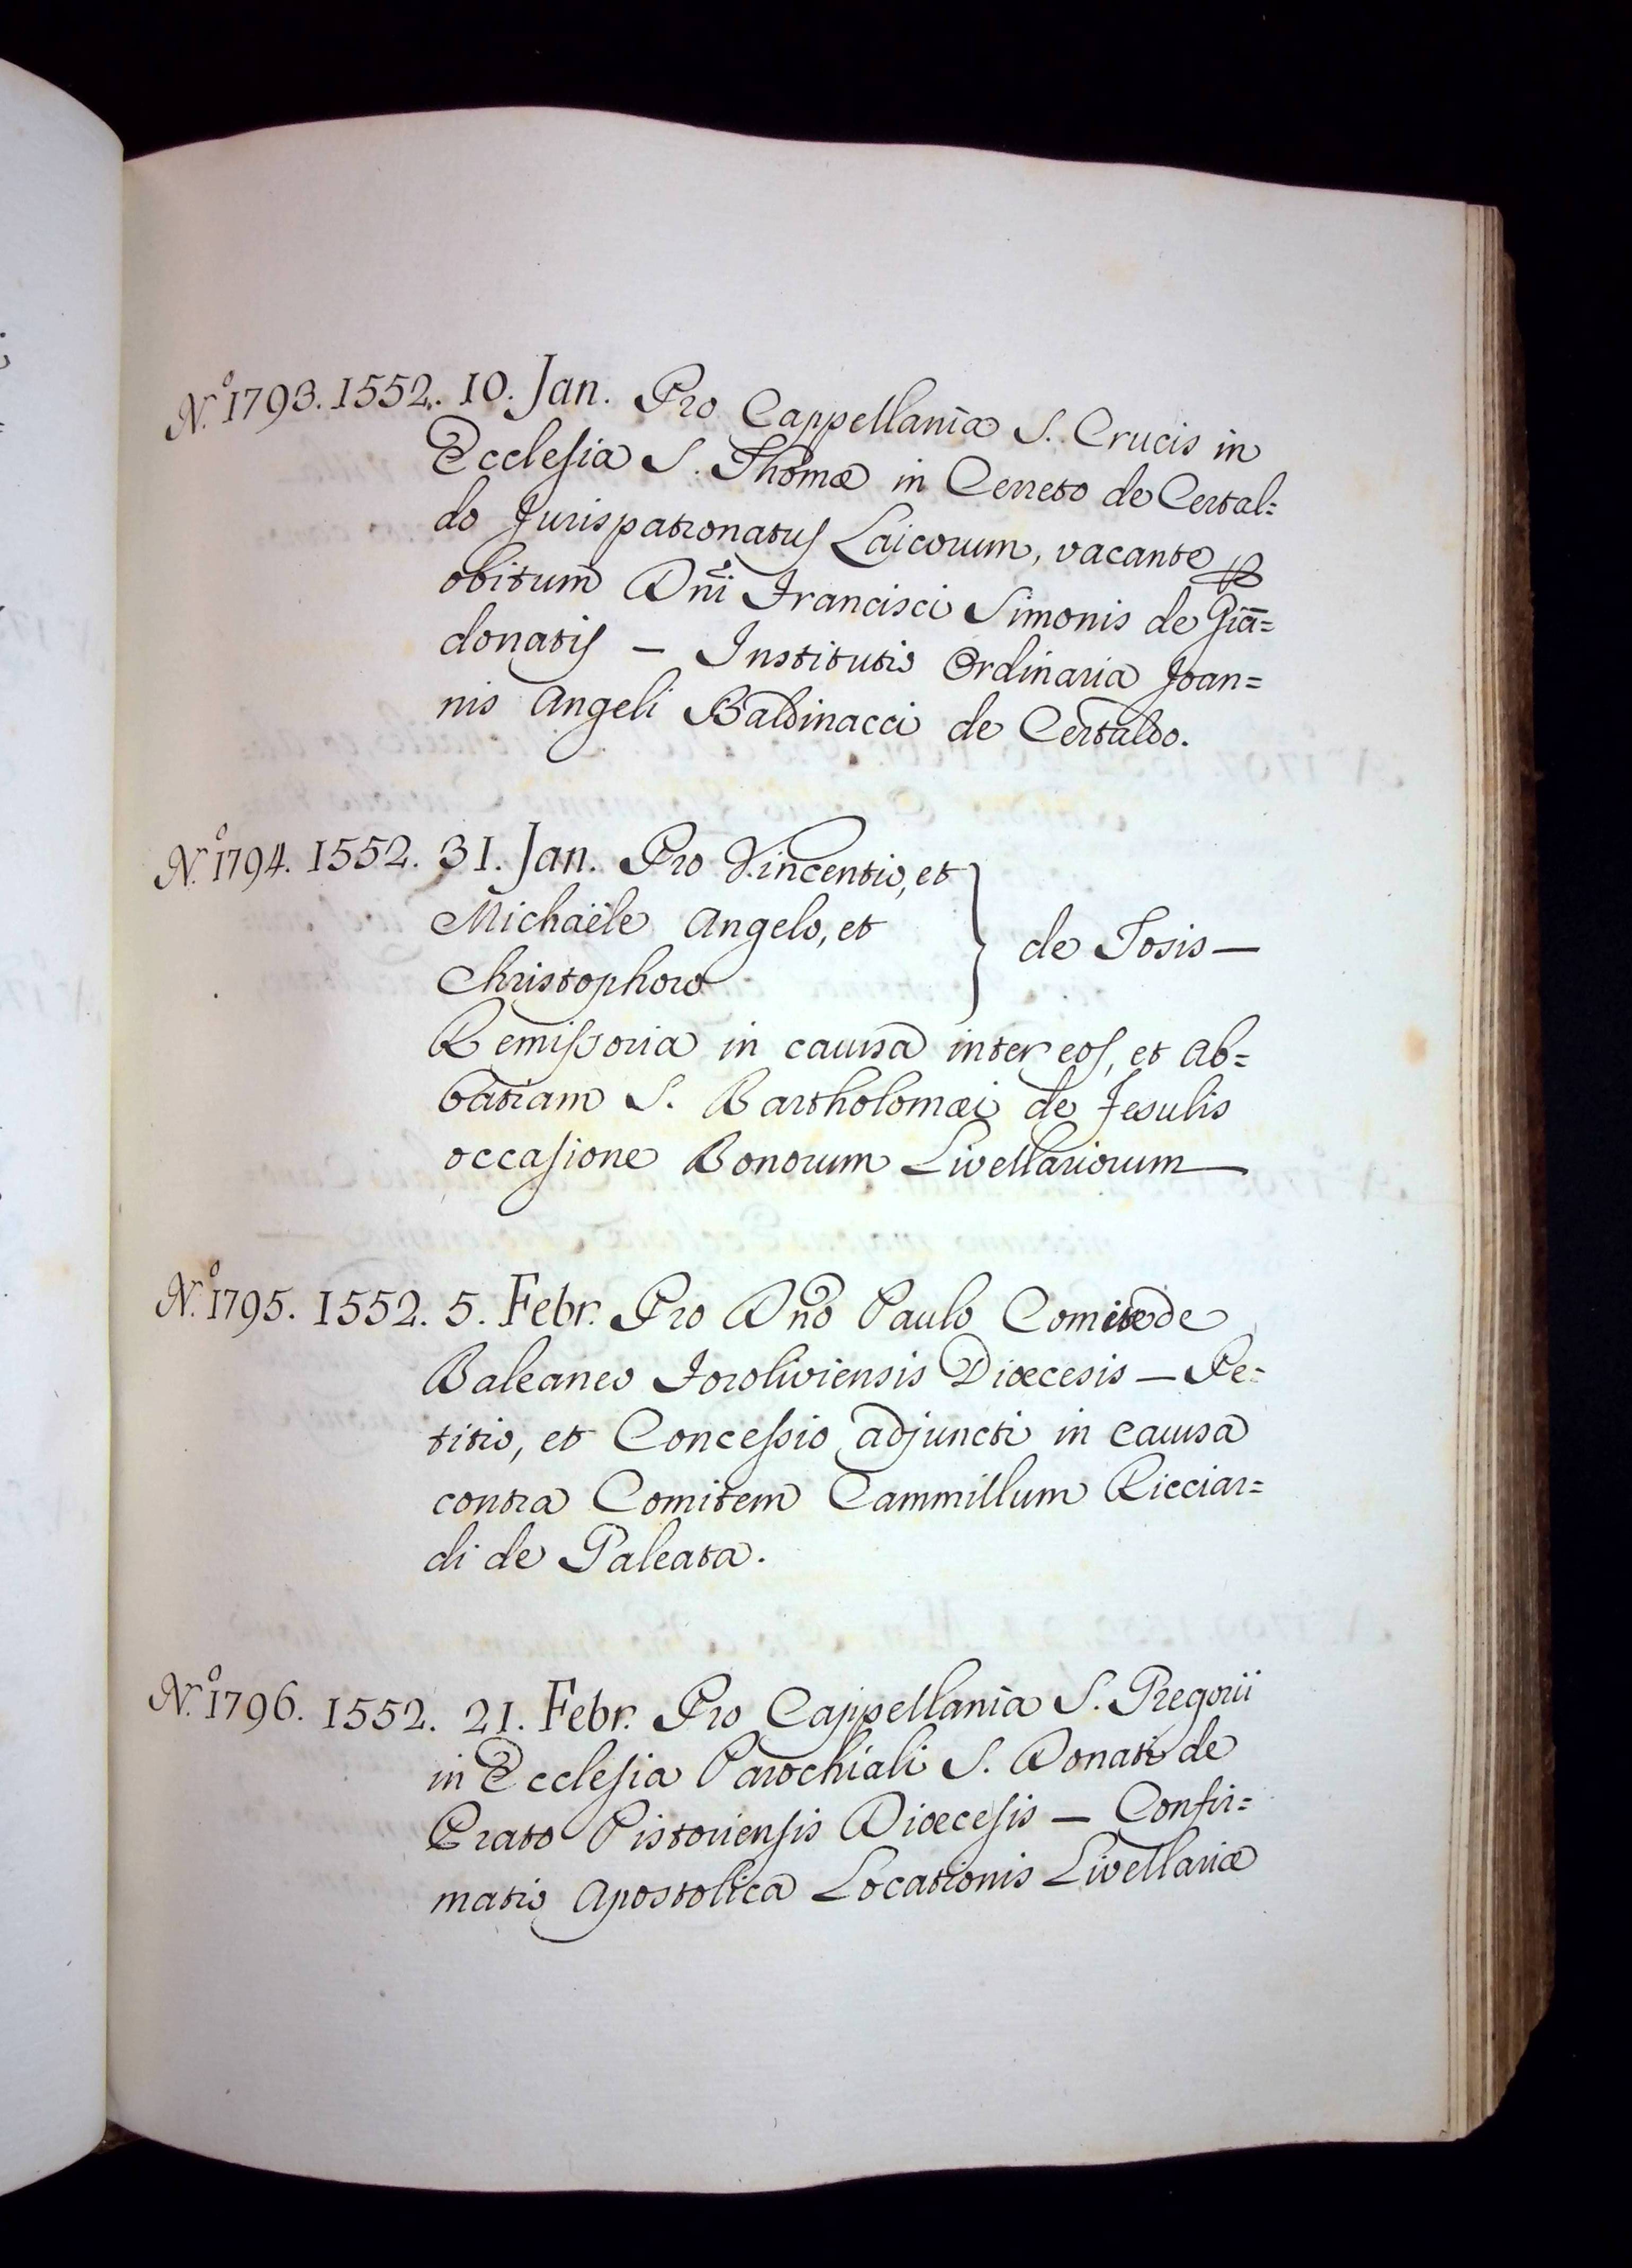 N.º 1793. 1552. 10. Jan. Pro Cappellania S. Crucis in
Ecclesia S. Thomæ in Cerreto de Certal=
do Jurispatronatus Laicorum, vacante ꝑ
obitum Dñi Francisci Simonis de Giā=
donatis – Institutio Ordinaria Joan=
nis Angeli Baldinacci de Certaldo.
N.º 1794. 1552. 31. Jan. Pro Vincentio, et
Michaële Angelo, et } de Tosis –
Christophoro
Remissoria in causa inter eos, et Ab=
batiam S. Bartholomæi de Fesulis
occasione Bonorum Livellariorum –
N.º 1795. 1552. 5. Febr. Pro Dño Paulo Comite de
Baleaneo Foroliviensis Diœcesis – Pe=
titio, et Concessio adjuncti in causa
contra Comitem Cammillum Ricciar=
di de Galeata.
N.º 1796. 1552. 21. Febr. Pro Cappellania S. Gregorii
in Ecclesia Parochiali S. Donati de
Prato Pistoriensis Diœcesis – Confir=
matio Apostolica Locationis Livellariæ